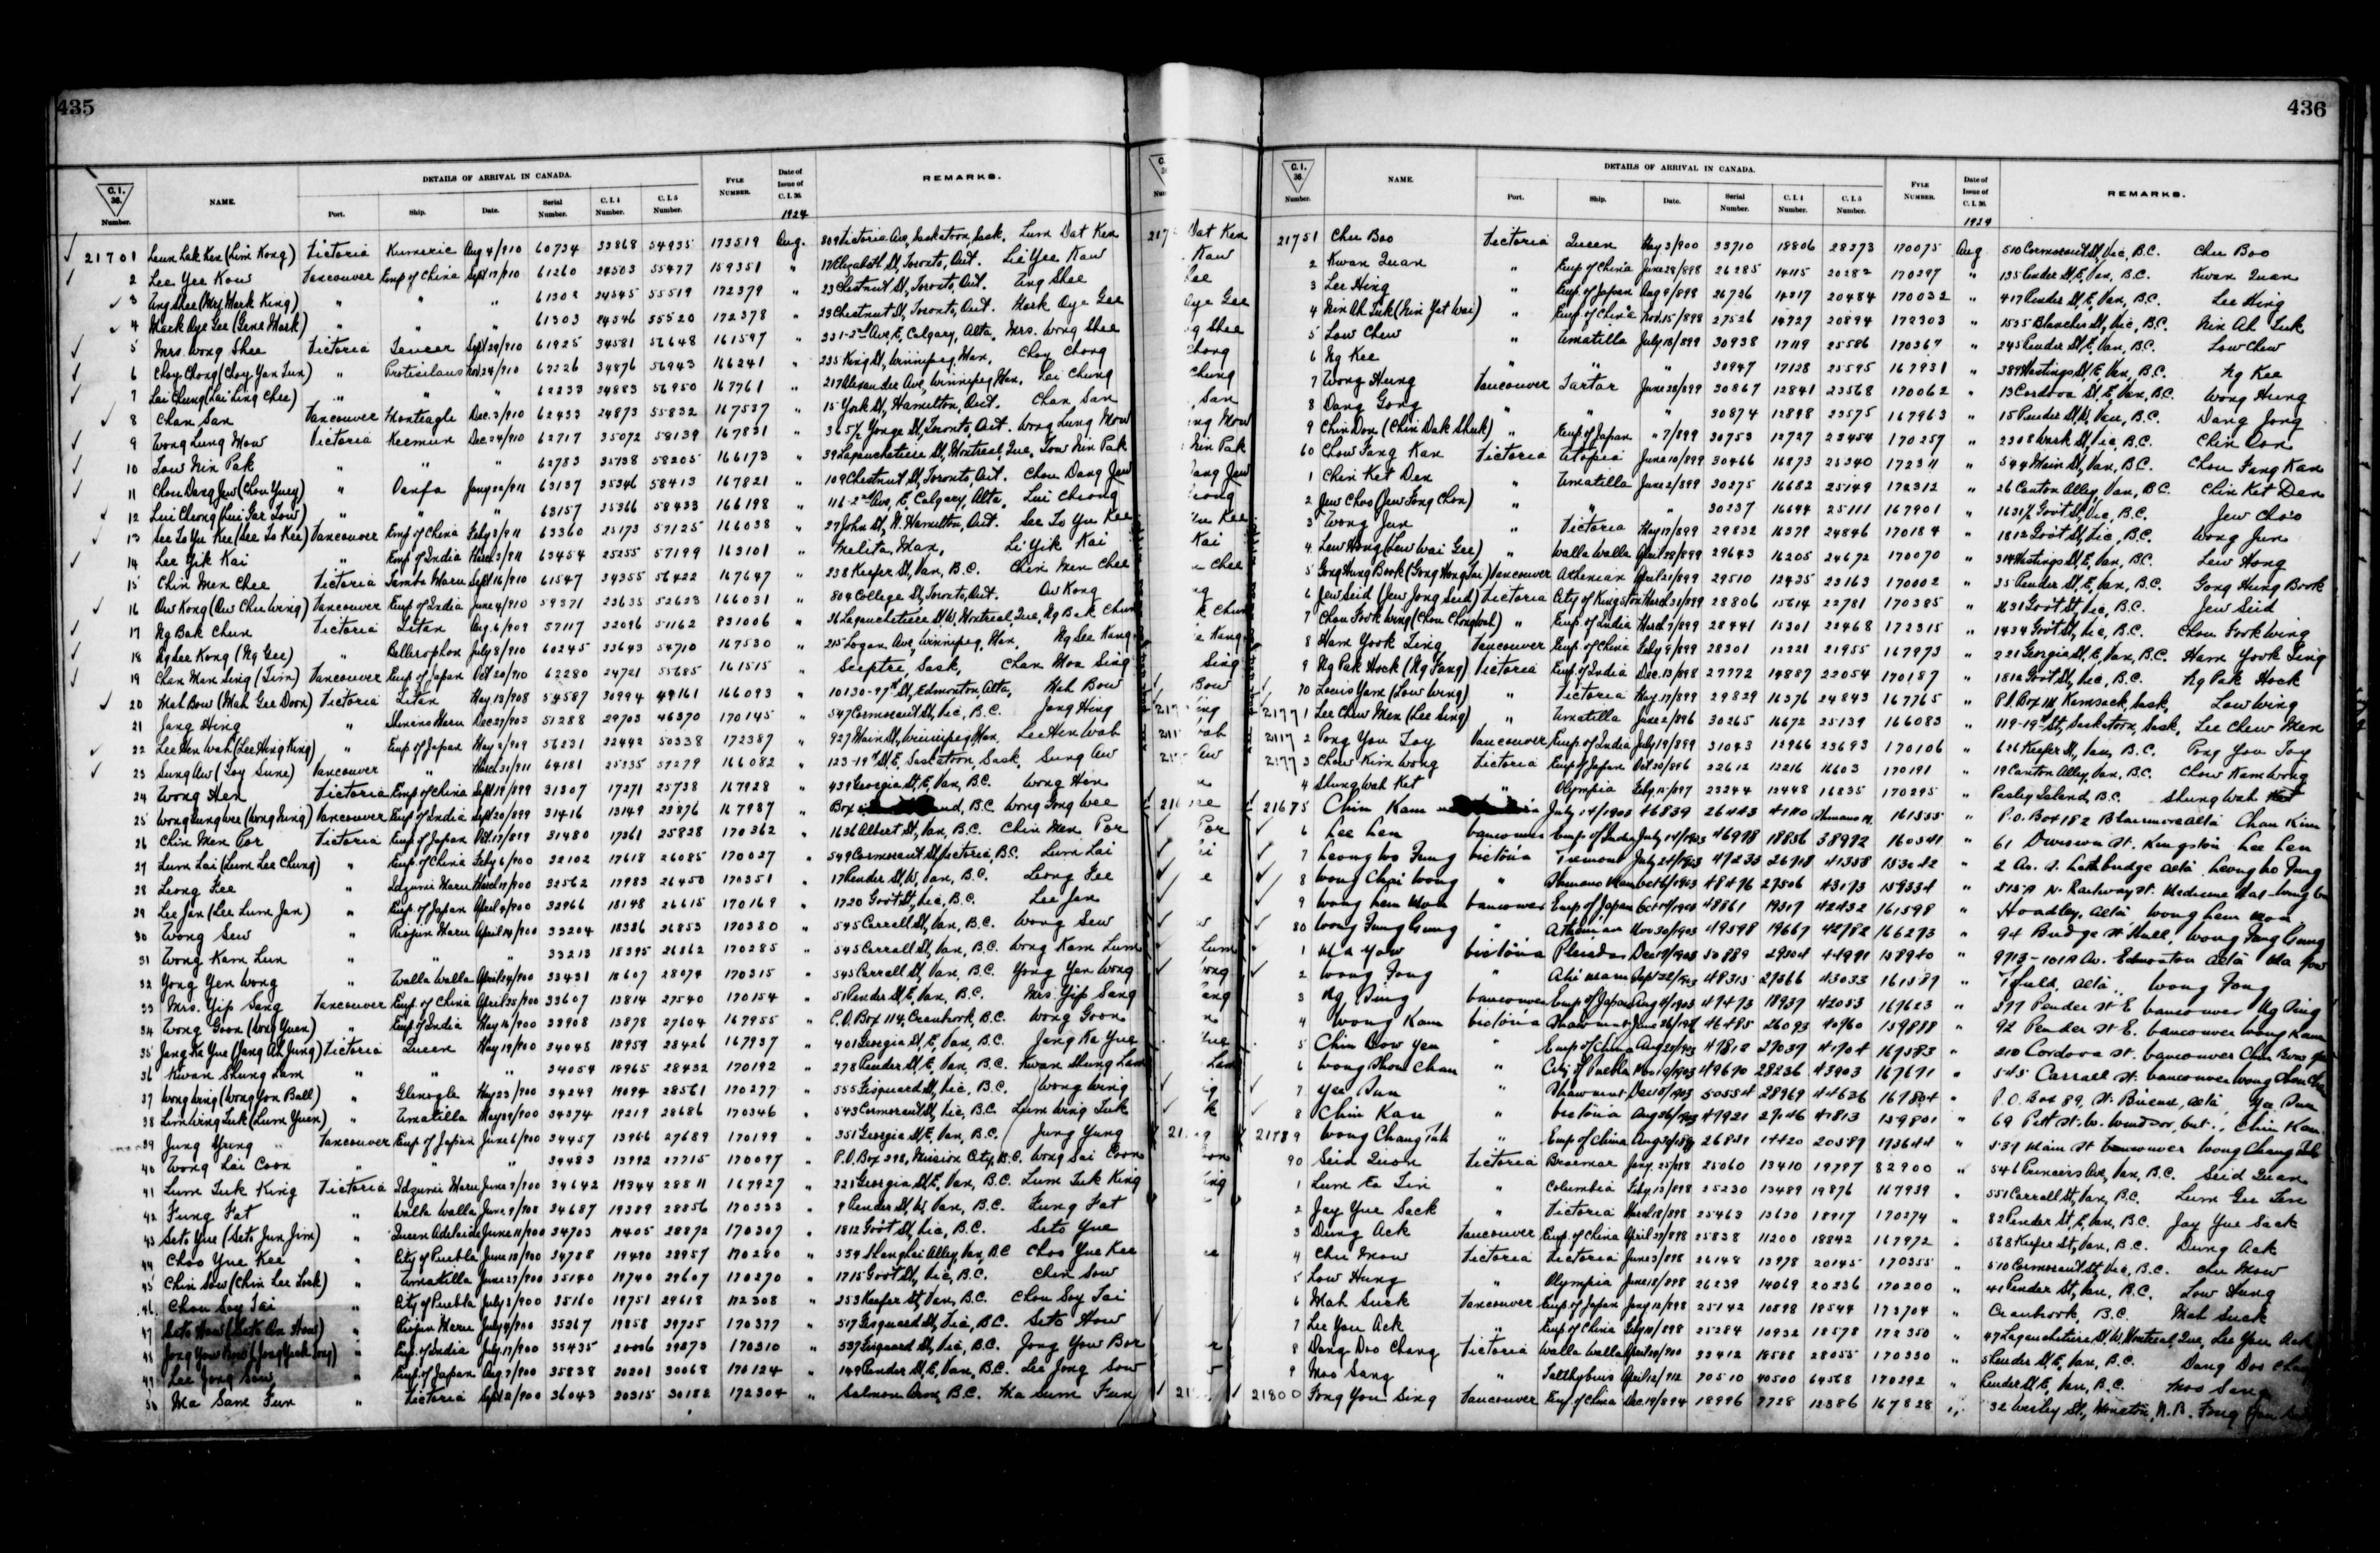 435
C.I. 36. Number. NAME. DETAILS OF ARRIVAL IN CANADA. Port. Ship. Date. Serial Number. C.I.4 Number. C.I.5 Number. FYLE NUMBER. Date of Issue of C.I.36. 1924 REMARKS.
21701 Victoria Kumeric Aug 4/910 60734 33868 54935 173519 Aug. 809 Victoria Ave, Saskatoon, Sask. Lum Dat Ken
2 Lee Yee Kow Vancouver Emp of China Sept 19/910 61260 24503 55477 159351 " 17 Elizabeth St, Toronto, Ont. Lee Yee Kaw
3 Ang Shee (Mrs Mark King) " " " 61302 24545 55519 172379 " 23 Chestnut St, Toronto, Ont. Ang Shee
4 Mark Aye Gee (Gene Mark) " " " 61303 24546 55520 172378 " 23 Chestnut St, Toronto, Ont. Mark Aye Gee
5 Mrs. Wong Shee Victoria Teucer Sept 29/910 61925 34581 56648 161597 " 331-2nd Ave, E, Calgary, Alta. Mrs. Wong Shee
6 Choy Chong (Choy Yan Lun) " Protesilaus Nov 24/910 34876 56943 166241 " 235 King St, Winnipeg, Man. Choy Chong
7 Lai Chung (Lai Ling Chee) " " " 62233 34883 56950 167761 " 217 Alexander Ave, Winnipeg Man. Lai Chung
8 Chan San Vancouver Monteagle Dec. 3/910 62433 24873 55832 167537 " 15 York St, Hamilton, Ont. Chan San
9 Wong Lung Mow Victoria Keemun Dec 24/910 62717 35072 58139 167831 " 365½ Yonge St, Toronto, Ont. Wong Lung Mow
10 Low Nin Pak " " " 62783 35138 58205 166173 " 39 Lagauchetiere St, Montreal, Que. Low Nin Pak
11 Chou Dang Jew (Chou Yung) " Oanfa Jany 22/911 63137 35346 58413 167821 " 109 Chestnut St, Toronto, Ont. Chou Dang Jew
12 Lui Cheong (Lui Gar Low) " " " 63157 35366 58433 166198 " 116-2nd Ave, E. Calgary, Alta. Lui Cheong
13 See To Yu Kee (See To Kee) Vancouver Emp of China Feby 3/911 63360 25173 57125 166038 " 27 John St, N. Hamilton, Ont. See To Yu Kee
14 Lee Yik Kai " Emp of India March 3/911 63454 25255 57199 163101 " Melita, Man. Li Yik Kai
15 Chin Men Chee Victoria Tamba Maru Sept 16/910 61547 34355 56422 167647 " 238 Keefer St, Van, B.C. Chin Men Chee
16 Ow Kong (Ow Chu Wing) Vancouver Emp of India June 4/910 59371 23635 52623 166031 " 804 College St, Toronto, Ont. Ow Kong
17 Ng Bak Chun Victoria Titan Aug. 6/909 57117 32096 51162 831006 " 36 Lagauchetiere St W, Montreal, Que. Ng Bak Chun
18 Ng Lee Kong (Ng Gee) " Bellerophon July 8/910 60245 33643 54710 167530 " 215 Logan Ave, Winnipeg, Man. Ng Lee Kong
19 Chan Man Sing (Tim) Vancouver Emp of Japan Oct 20/910 62280 24721 55685 161515 " Sceptre, Sask. Chan Man Sing
20 Mah Bow (Mah Gee Doon) Victoria Titan May 13/908 54587 30994 49161 166093 " 10130-97th St, Edmonton Alta. Mah Bow
21 Jang Hing " Shinano Maru Dec 27/903 51288 29703 46370 170145 " 547 Cormorant St, Vic, B.C. Jang Hing
22 Lee Hen Wah (Lee Hing King) " Emp of Japan May 2/909 56231 22442 50338 172387 " 927 Main St, Winnipeg, Man. Lee Hen Wah
23 Sung Aw (Joy Sune) Vancouver " March 31/911 64181 25335 57279 166082 " 123-19th St, E, Saskatoon, Sask. Sung Aw
24 Wong Hen Victoria Emp of China Sept 19/899 31307 17271 25738 167928 " 439 Georgia St, E, Van, B.C. Wong Hen
25 Vancouver Emp of India Sept 20/899 31416 13149 23876 167987 " Box B.C. Wong Gong Wee
26 Chin Men Por Victoria Emp of Japan Oct. 17/899 31480 17361 25828 170362 " 1636 Albert St, Van, B.C. Chin Men Por
27 Lum Lai (Lum Lee Chung) " Emp of China Feby 6/900 32102 17618 26085 170027 " 549 Cormorant St, Victoria, B.C. Lum Lai
28 Leong Fee " Idzumi Maru March 19/900 32562 17983 26450 170351 " 17 Pender St, W, Van, B.C. Leong Fee
29 Lee Jan (Lee Lum Jan) " Emp. of Japan April 9/900 32966 18148 26615 170169 " 1720 Gov't St, Vic, B.C. Lee Jan
30 Wong Sew " Riojun Maru April 14/900 33204 18386 26853 170380 " 545 Carrall St, Van, B.C. Wong Sew
31 Wong Kam Lun " " " 33213 18395 26862 170285 " 545 Carrall St, Van, B.C. Wong Kam Lum
32 Yong Yen Wong " Walla Walla April 24/900 33431 18607 28074 170315 " 543 Carrall St, Van, B.C. Yong Yen Wong
33 Mrs. Yip Sang Vancouver Emp of China April 25/900 33607 13814 27540 170154 " 51 Pender St, E, Van, B.C. Mrs Yip Sang
34 Wong Goon (Wong Yuen) " Emp of India May 16/900 33908 13878 27604 167955 " P.O. Box 114, Cranbrook, B.C. Wong Goon
35 Jang Ka Yue (Jang Ah Jung) Victoria Queen May 19/900 34048 18959 28426 167937 " 401 Georgia St, E, Van, B.C. Jang Ka Yue
36 Kwan Shung Lam " " " 34054 18965 28432 170192 " 278 Pender St, E, Van, B.C. Kwan Shung Lam
37 Wong Wing (Wong Yon Ball) " Glenogle May 23/900 34249 19094 28561 170277 " 555 Fisguard St, Vic, B.C. Wong Wing
38 Lum Wing Tuk (Lum Yuen) " Umatilla May 29/900 34374 19219 28686 170346 " 543 Cormorant St, Vic, B.C. Lum Wing Tuk
39 Jung Yung Vancouver Emp of Japan June 6/900 34457 13966 27689 170199 " 351 Georgia St, E, Van, B.C. Jung Yung
40 Wong Lai Coon " " " 34483 13992 27715 170097 " P.O. Box 298, Mission City, B.C. Wong Lai Coon
41 Lum Tuk King Victoria Idzumi Maru June 7/900 34642 19344 28811 167927 " 225 Georgia St, E, Van, B.C. Lum Tuk King
42 Fung Fat " Walla Walla June 9/900 34687 19389 28856 170333 " 9 Pender St, W, Van, B.C. Fung Fat
43 Seto Yue (Seto Jun Jim) " Queen Adelaide June 11/900 34703 19405 28872 170307 " 1812 Gov't St, Vic, B.C. Seto Yue
44 Choo Yue Kee " City of Puebla June 18/900 34788 19490 28957 170280 " 534 Shanghai Alley, Van, B.C. Choo Yue Kee
45 Chin Sow (Chin Lee Lock) " Umatilla June 27/900 35140 19740 29607 170270 " 1715 Gov't St, Vic, B.C. Chin Sow
46 Chou Soy Tai " City of Puebla July 3/900 35160 19751 29618 172308 " 253 Keefer St, Van, B.C. Chou Soy Tai
47 Seto How (Seto On How) " Riojun Maru July 9/900 35267 19858 29725 170377 " 517 Fisguard St, Vic, B.C. Seto How
48 Jong Yow Bow " Emp. of India July 17/900 35435 20006 29873 170310 " 537 Fisguard St, Vic, B.C. Jong Yow Bor
49 Lee Jong Sow " Emp. of Japan Aug 7/900 35838 20201 30068 170124 " 149 Pender St, E, Van, B.C. Lee Jong Sow
50 Ma Sam Fun " Victoria Sept 12/900 36043 20315 30182 172304 " Salmon Arm, B.C. Ma Sum Fun
436
C.I. 36. Number. NAME. DETAILS OF ARRIVAL IN CANADA. Port. Ship. Date. Serial Number. C.I.4 Number. C.I.5 Number. FYLE NUMBER. Date of Issue of C.I.36. 1924 REMARKS.
21751 Chu Boo Victoria Queen May 3/900 33710 18806 28273 170075 Aug 510 Cormorant St, Vic, B.C. Chu Boo
2 Kwan Quan " Emp of China June 28/898 26285 14115 20282 170297 " 135 Pender St, E, Van, B.C. Kwan Quan
3 Lee Hing " Emp. of Japan Aug 9/898 26736 14317 20484 170032 " 417 Pender St, E, Van, B.C. Lee Hing
4 Nin Ah Tuk (Nin Yat Wai) " Emp of China Nov. 15/898 27526 14727 20894 172303 " 1525 Blanchard St, Vic, B.C. Nin Ah Tuk
5 Low Chew " Umatilla July 13/899 30938 17119 25586 170367 " 245 Pender St, E, Van, B.C. Low Chew
6 Ng Kee " " " 30947 17128 25595 167931 " 389 Hastings St, E, Van, B.C. Ng Kee
7 Wong Hung Vancouver Tartar June 28/899 30867 12841 23568 170062 " 13 Cordova St, E, Van, B.C. Wong Hung
8 Dang Gong " " " 30874 12898 23575 167963 " 15 Pender St, W, Van, B.C. Dang Jong
9 Chin Don (Chin Dak Shuk) " Emp. of Japan " 7/899 30753 12727 23454 170257 " 2308 Wark St, Vic, B.C. Chin Don
60 Chow Fang Kan Victoria Utopia June 10/899 30466 16873 25340 172311 " 544 Main St, Van, B.C. Chou Fang Kan
1 Chin Ket Den " Umatilla June 2/899 30275 16682 25149 172312 " 26 Canton Alley, Van, B.C. Chin Ket Den
2 Jew Choo (Jew Fong Chon) " " " 30237 16644 25111 167901 " 1631½ Gov't St, Vic, B.C. Jew Choo
3 Wong Jun " Victoria May 17/899 29832 16379 24846 170184 " 1812 Gov't St, Vic, B.C. Wong Jun
4 Lew Hong (Lew Wai Gee) " Walla Walla April 28/899 29643 16205 24672 170070 " 314 Hastings St, E, Van, B.C. Lew Hong
5 Gong Hung Book (Gong Hong Tai) Vancouver Athenian April 21/899 29510 12435 23163 170002 " 35 Pender St, E, Van, B.C. Gong Hung Book
6 Jew Seid (Jew Jong Seid) Victoria City of Kingston March 31/899 28806 15614 22781 170385 " 1631 Gov't St, Vic, B.C. Jew Seid
7 Chou Fook Wing (Chou Chongwah) " Emp. of India March 7/899 28441 15301 22468 172315 " 1434 Gov't St, Vic, B.C. Chou Fook Wing
8 Ham Yook Ling Vancouver Emp. of China Feby 9/899 28201 12221 21955 167973 " 221 Georgia St, E, Van, B.C. Ham Yook Ling
9 Ng Pak Hock (Ng Fang) Victoria Emp. of India Dec. 13/898 27772 14887 22054 170187 " 1812 Gov't St, Vic, B.C. Ng Pak Hock
70 Louis Yam (Low Wing) " Victoria May 17/899 29829 16376 24843 167765 " P.O. Box 111, Kamsack, Sask. Low Wing
21771 Lee Chew Men (Lee Sing) " Umatilla June 2/896 30265 16672 25139 166083 " 119-19th St, Saskatoon, Sask. Lee Chew Men
2 Pong You Joy Vancouver Emp. of India July 19/899 31043 12966 23693 170106 " 626 Keefer St, Van, B.C. Pong You Joy
3 Chow Kim Wong Victoria Emp of Japan Oct 20/896 22612 12216 16603 170191 " 19 Canton Alley, Van, B.C. Chow Kam Wong
4 Shung Wah Ket " Olympia Feby. 15/897 23244 12448 16835 170295 " Pasley Island, B.C. Shung Wah Ket
21675 Chin Kam July 14/1903 46839 26443 4140 Shinano M. 161355 " P.O. Box 182 Blairmore Alta Chan Kim
6 Lee Len Vancouver Emp of India July 14/1903 46978 18856 38992 160341 " 61 Division St. Kingston Lee Len
7 Leong Wo Fung Victoria Tremont July 28/1903 47233 26718 41358 153682 " 2 Av. S. Lethbridge Alta Leong Wo Fung
8 Wong Choi Wong " Shinano Maru Oct 6/1903 48476 27506 43173 159334 " 515A N. Railway St. Medicine Hat
9 Wong Lem Mon Vancouver Emp of Japan Oct 14/1903 48861 19317 42432 161598 " Hoadley, Alta Wong Lem Mon
80 Wong Fung Gung " Athenian Nov 30/1903 49598 19667 42782 166273 " 94 Bridge St Hull, Wong Fung Gung
1 Ma Yow Victoria Pleiades Dec 19/1903 50889 29304 44971 158940 " 9713-101A Av. Edmonton Alta Ma Yow
2 Wong Fong " Aki Maru Sept 22/1903 48315 27366 43033 161587 " Tofield, Alta., Wong Fong
3 Ng Sing Vancouver Emp of Japan Aug 4/1903 47473 18937 42053 167623 " 377 Pender St E Vancouver Ng Sing
4 Wong Kam Victoria Shawmut June 26/1903 46485 26093 40760 159888 " 92 Pender St E. Vancouver Wong Kam
5 Chin Bow Yen " Emp of China Aug 25/1903 47812 27037 41704 167583 " 210 Cordova St. Vancouver Chin Bow Yen
6 Wong Shou Chan " City of Puebla Nov 19/1903 49670 28236 43903 167671 " 545 Carrall St. Vancouver Wong Shou Chan
7 Yee Sun " Shawmut Dec 15/1903 50554 28969 44636 167804 " P.O. Box 89, St. Brieux, Yee Sun
8 Chin Kan " Victoria Aug 26/1903 47921 27146 41813 159801 " 69 Pitt St. W. Windsor, Ont., Chin Kam
21789 Wong Chang Tuk " Emp of China Aug 30/1898 26841 14420 20587 173644 " 539 Main St Vancouver Wong Chang Tuk
90 Seid Quon Victoria Braemar Jany. 25/898 25060 13410 19797 82900 " 546 Princess Ave, Van, B.C. Seid Quan
1 Lum Ga Fin " Columbia Feby 13/898 25230 13489 19876 167939 " 551 Carrall St, Van, B.C. Lum Gee Fin
2 Jay Yue Sack " Victoria March 18/898 25463 13630 18917 170274 " 82 Pender St, E, Van, B.C. Jay Yue Sack
3 Dung Ack Vancouver Emp. of China April 27/898 25838 11200 18842 167972 " 568 Keefer St, Van, B.C. Dung Ack
4 Chu Mow Victoria Victoria June 3/898 26148 13978 20145 170355 " 510 Cormorant St, Vic, B.C. Chu Mow
5 Low Hung " Olympia June 18/898 26239 14069 20236 170200 " 41 Pender St, Van, B.C. Low Hung
6 Mah Suck Vancouver Emp of Japan Jany 12/898 25142 10898 18544 173704 " Cranbrook, B.C. Mah Suck
7 Lee You Ack " Emp of China Feby 10/898 25284 10932 18578 172350 " 47 Lagauchetiere St, W, Montreal, Que. Lee You Ack
8 Dang Doo Chong Victoria Walla Walla April 24/900 33412 18588 28055 170330 " 5 Pender St, E, Van, B.C. Dang Doo Chong
9 Moo Sang " Talthybius April 12/912 70510 40500 64568 170292 " Pender St, E, Van, B.C. Moo Sang
21800 Fong You Sing Vancouver Emp. of China Dec. 19/894 18996 7728 12386 167828 " 32 Wesley St, Moncton, N.B. Fong You